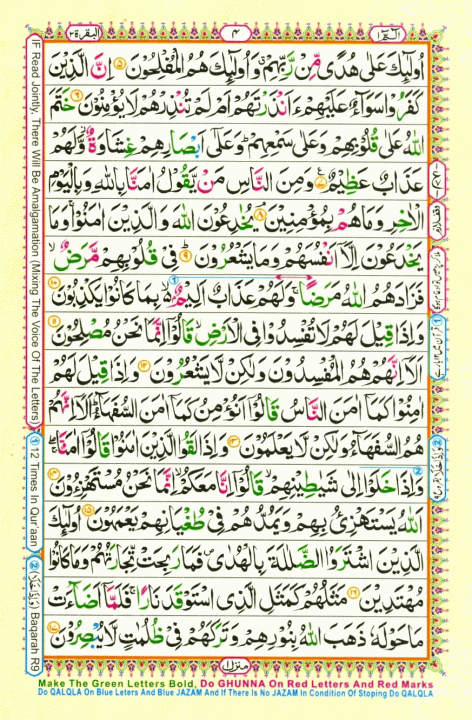 البقرة ٢
٤
الٓمّٓ ١
اُولٰٓئِكَ عَلٰی هُدًی مِّنْ رَّبِّهِمْ ۙ وَ اُولٰٓئِكَ هُمُ الْمُفْلِحُوْنَ ۝۵ اِنَّ الَّذِیْنَ
كَفَرُوْا سَوَآءٌ عَلَیْهِمْ ءَاَنْذَرْتَهُمْ اَمْ لَمْ تُنْذِرْهُمْ لَا یُؤْمِنُوْنَ ۝۶ خَتَمَ
اللّٰهُ عَلٰی قُلُوْبِهِمْ وَ عَلٰی سَمْعِهِمْ ؕ وَ عَلٰۤی اَبْصَارِهِمْ غِشَاوَةٌ ؗ وَّ لَهُمْ
عَذَابٌ عَظِیْمٌ ۝۷ وَ مِنَ النَّاسِ مَنْ یَّقُوْلُ اٰمَنَّا بِاللّٰهِ وَ بِالْیَوْمِ
الْاٰخِرِ وَ مَا هُمْ بِمُؤْمِنِیْنَ ۝۸ یُخٰدِعُوْنَ اللّٰهَ وَ الَّذِیْنَ اٰمَنُوْا ۚ وَ مَا
یَخْدَعُوْنَ اِلَّاۤ اَنْفُسَهُمْ وَ مَا یَشْعُرُوْنَ ۝۹ فِیْ قُلُوْبِهِمْ مَّرَضٌ ۙ
فَزَادَهُمُ اللّٰهُ مَرَضًا ۚ وَ لَهُمْ عَذَابٌ اَلِیْمٌۢ ۙ۬ بِمَا كَانُوْا یَكْذِبُوْنَ ۝۱۰
وَ اِذَا قِیْلَ لَهُمْ لَا تُفْسِدُوْا فِی الْاَرْضِ ۙ قَالُوْۤا اِنَّمَا نَحْنُ مُصْلِحُوْنَ ۝۱۱
اَلَاۤ اِنَّهُمْ هُمُ الْمُفْسِدُوْنَ وَ لٰكِنْ لَّا یَشْعُرُوْنَ ۝۱۲ وَ اِذَا قِیْلَ لَهُمْ
اٰمِنُوْا كَمَاۤ اٰمَنَ النَّاسُ قَالُوْۤا اَنُؤْمِنُ كَمَاۤ اٰمَنَ السُّفَهَآءُ ؕ اَلَاۤ اِنَّهُمْ
هُمُ السُّفَهَآءُ وَ لٰكِنْ لَّا یَعْلَمُوْنَ ۝۱۳ وَ اِذَا لَقُوا الَّذِیْنَ اٰمَنُوْا قَالُوْۤا اٰمَنَّا ۖۚ
وَ اِذَا خَلَوْا اِلٰی شَیٰطِیْنِهِمْ ۙ قَالُوْۤا اِنَّا مَعَكُمْ ۙ اِنَّمَا نَحْنُ مُسْتَهْزِءُوْنَ ۝۱۴
اَللّٰهُ یَسْتَهْزِئُ بِهِمْ وَ یَمُدُّهُمْ فِیْ طُغْیَانِهِمْ یَعْمَهُوْنَ ۝۱۵ اُولٰٓئِكَ
الَّذِیْنَ اشْتَرَوُا الضَّلٰلَةَ بِالْهُدٰی ۪ فَمَا رَبِحَتْ تِّجَارَتُهُمْ وَ مَا كَانُوْا
مُهْتَدِیْنَ ۝۱۶ مَثَلُهُمْ كَمَثَلِ الَّذِی اسْتَوْقَدَ نَارًا ۚ فَلَمَّاۤ اَضَآءَتْ
مَا حَوْلَهٗ ذَهَبَ اللّٰهُ بِنُوْرِهِمْ وَ تَرَكَهُمْ فِیْ ظُلُمٰتٍ لَّا یُبْصِرُوْنَ ۝۱۷
منزل ١
IF Read Jointly, There Will Be Amalgamation (Mixing The Voice Of The Letters)
① 12 Times In Qur'aan
② (وَاِذَا خَلَا) Baqarah R9
وقف لازم
Make The Green Letters Bold, Do GHUNNA On Red Letters And Red Marks
Do QALQLA On Blue Leters And Blue JAZAM And If There Is No JAZAM In Condition Of Stoping Do QALQLA